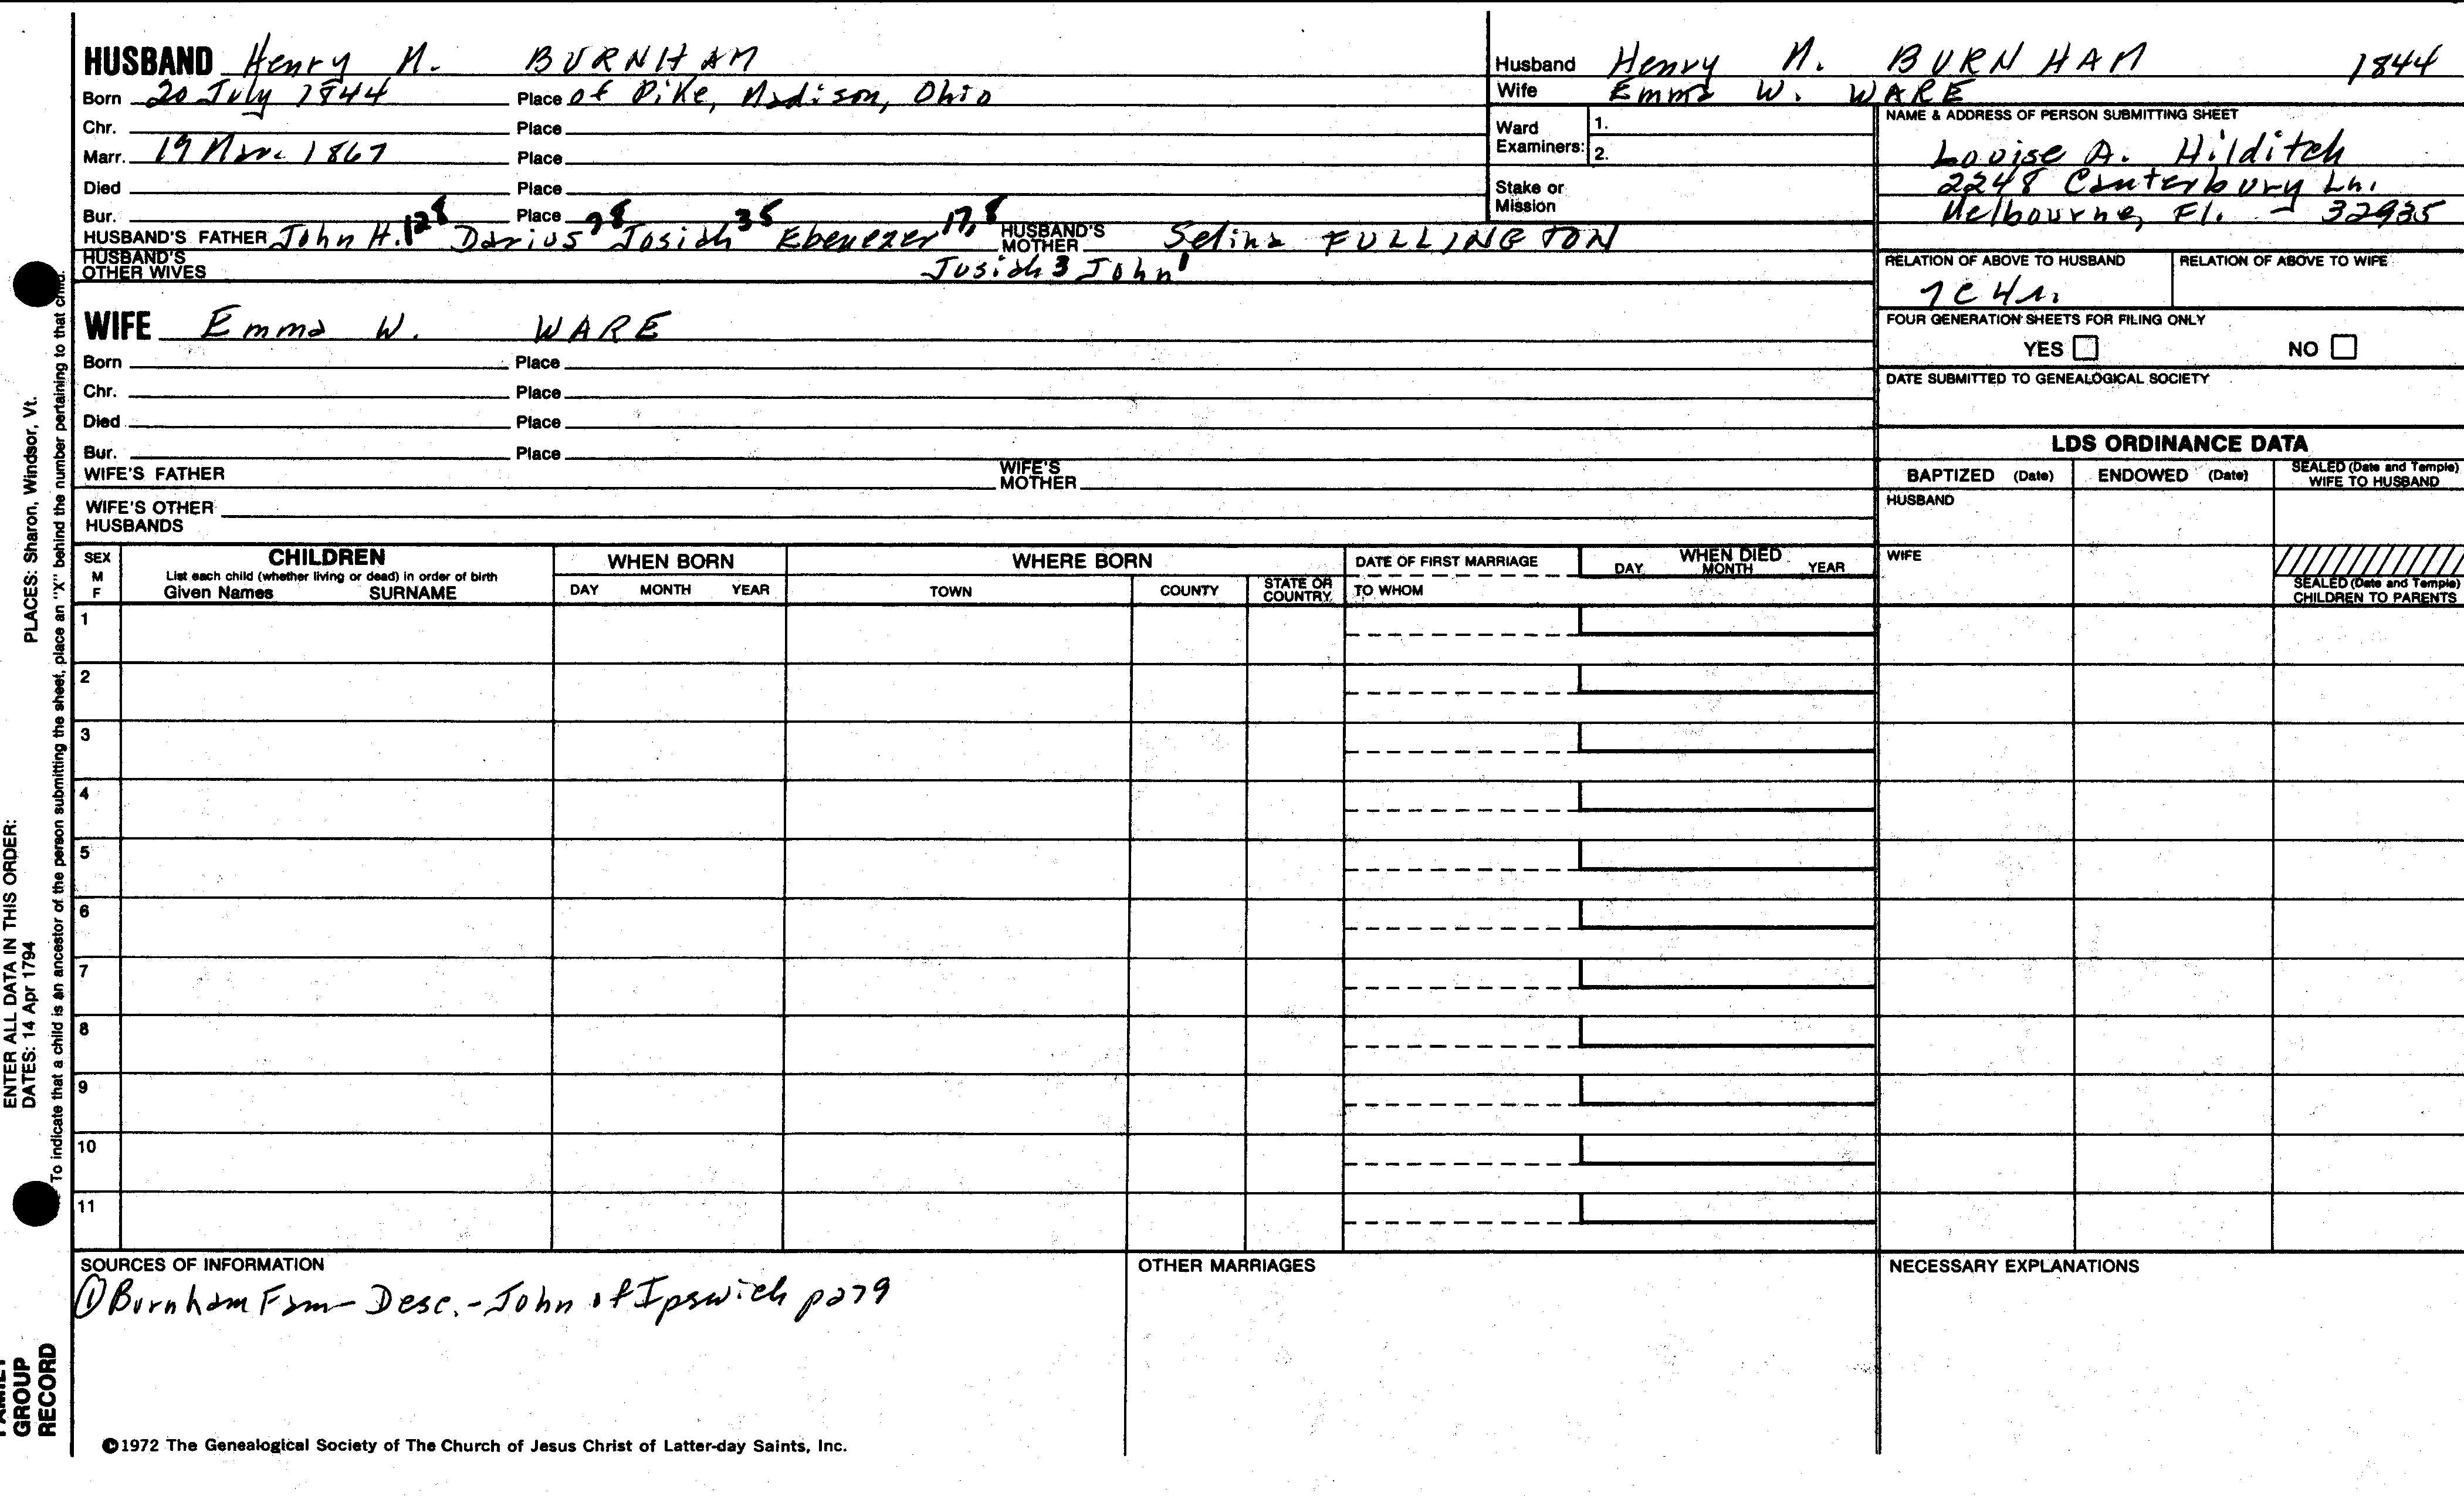 HUSBAND Henry M. BURNHAM
Born 20 July 1844 Place of Pike, Madison, Ohio
Chr. Place
Marr. 19 Mar. 1867 Place
Died Place
Bur. Place
HUSBAND'S FATHER John H. 128 Darius 78 Josiah 35 Ebenezer 17, 8 HUSBAND'S MOTHER Selina FULLINGTON
HUSBAND'S OTHER WIVES Josiah 3 John 1
WIFE Emma W. WARE
Born Place
Chr. Place
Died Place
Bur. Place
WIFE'S FATHER WIFE'S MOTHER
WIFE'S OTHER HUSBANDS
Husband Henry M. BURNHAM 1844
Wife Emma W. WARE
Ward Examiners: 1.
2.
Stake or Mission
NAME & ADDRESS OF PERSON SUBMITTING SHEET
Louise A. Hilditch
2248 Canterbury Ln.
Melbourne, Fl. - 32935
RELATION OF ABOVE TO HUSBAND RELATION OF ABOVE TO WIFE
7C4r.
FOUR GENERATION SHEETS FOR FILING ONLY
YES NO
DATE SUBMITTED TO GENEALOGICAL SOCIETY
LDS ORDINANCE DATA
BAPTIZED (Date) ENDOWED (Date) SEALED (Date and Temple) WIFE TO HUSBAND
HUSBAND
WIFE
SEALED (Date and Temple) CHILDREN TO PARENTS
SEX M F CHILDREN WHEN BORN WHERE BORN DATE OF FIRST MARRIAGE WHEN DIED
List each child (whether living or dead) in order of birth
Given Names SURNAME DAY MONTH YEAR TOWN COUNTY STATE OR COUNTRY TO WHOM DAY MONTH YEAR
1
2
3
4
5
6
7
8
9
10
11
SOURCES OF INFORMATION OTHER MARRIAGES NECESSARY EXPLANATIONS
① Burnham Fam - Desc. - John of Ipswich p279
©1972 The Genealogical Society of The Church of Jesus Christ of Latter-day Saints, Inc.
ENTER ALL DATA IN THIS ORDER:
DATES: 14 Apr 1794 PLACES: Sharon, Windsor, Vt.
To indicate that a child is an ancestor of the person submitting the sheet, place an "X" behind the number pertaining to that child.
FAMILY
GROUP
RECORD